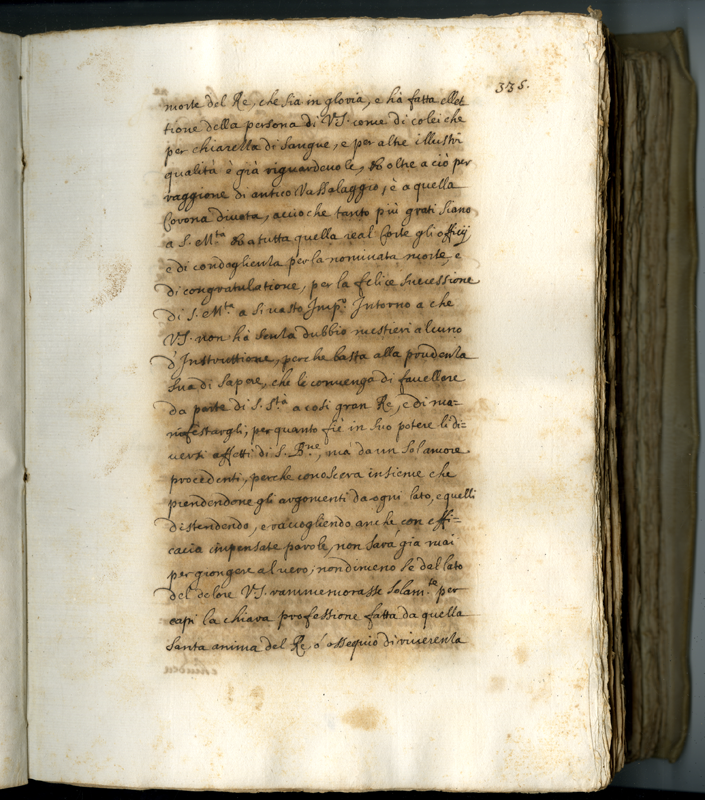 335.
morte del Re, che sia in gloria, e hà fatta ellet
tione della persona di V.S. come di colei che
per chiarezza di Sangue, e per altre illustri
qualità è già riguardevole, et oltre a ciò per
raggione di antico Vassalaggio, è a quella
Corona divota, acciò che tanto più grati siano
a S. M.tà et a tutta quella real Corte gli officij
e di condoglienza per la nominata morte, e
di congratulatione, per la felice Successione
di S. M.tà a si vasto Imp.o Intorno a che
V.S. non hà senza dubbio mestieri alcuno
d'Instruttione, perche basta alla prudenza
Sua di Sapere, che le convenga di favellare
da parte di S. S.tà a così gran Re, e di ma-
nifestargli, per quanto fie in suo potere li di-
versi affetti di S. B.ne, mà da un Sol amore
procedenti, perche conoscerà insieme che
prendendone gli argomenti da ogni lato, e quelli
distendendo, e raccogliendo anche con effi=
caccia impensate parole, non sarà già mai
per giongere al vero; nondimeno se del lato
del dolore V.S. rammemorasse Solam.te per
capi la chiara professione fatta da quella
Santa anima del Re, ò ossequio di riverenza